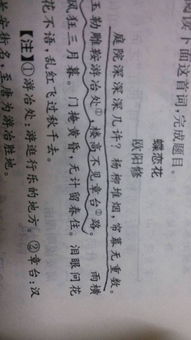 阅读下面这首词,完成题目。
蝶恋花
欧阳修
庭院深深深几许?杨柳堆烟,帘幕无重数。
玉勒雕鞍游冶处①,楼高不见章台②路。 雨横
风狂三月暮。门掩黄昏,无计留春住。泪眼问花
花不语,乱红飞过秋千去。
【注】①游冶处:游逛行乐的地方。②章台:汉
长安街名,至唐为游冶胜地。